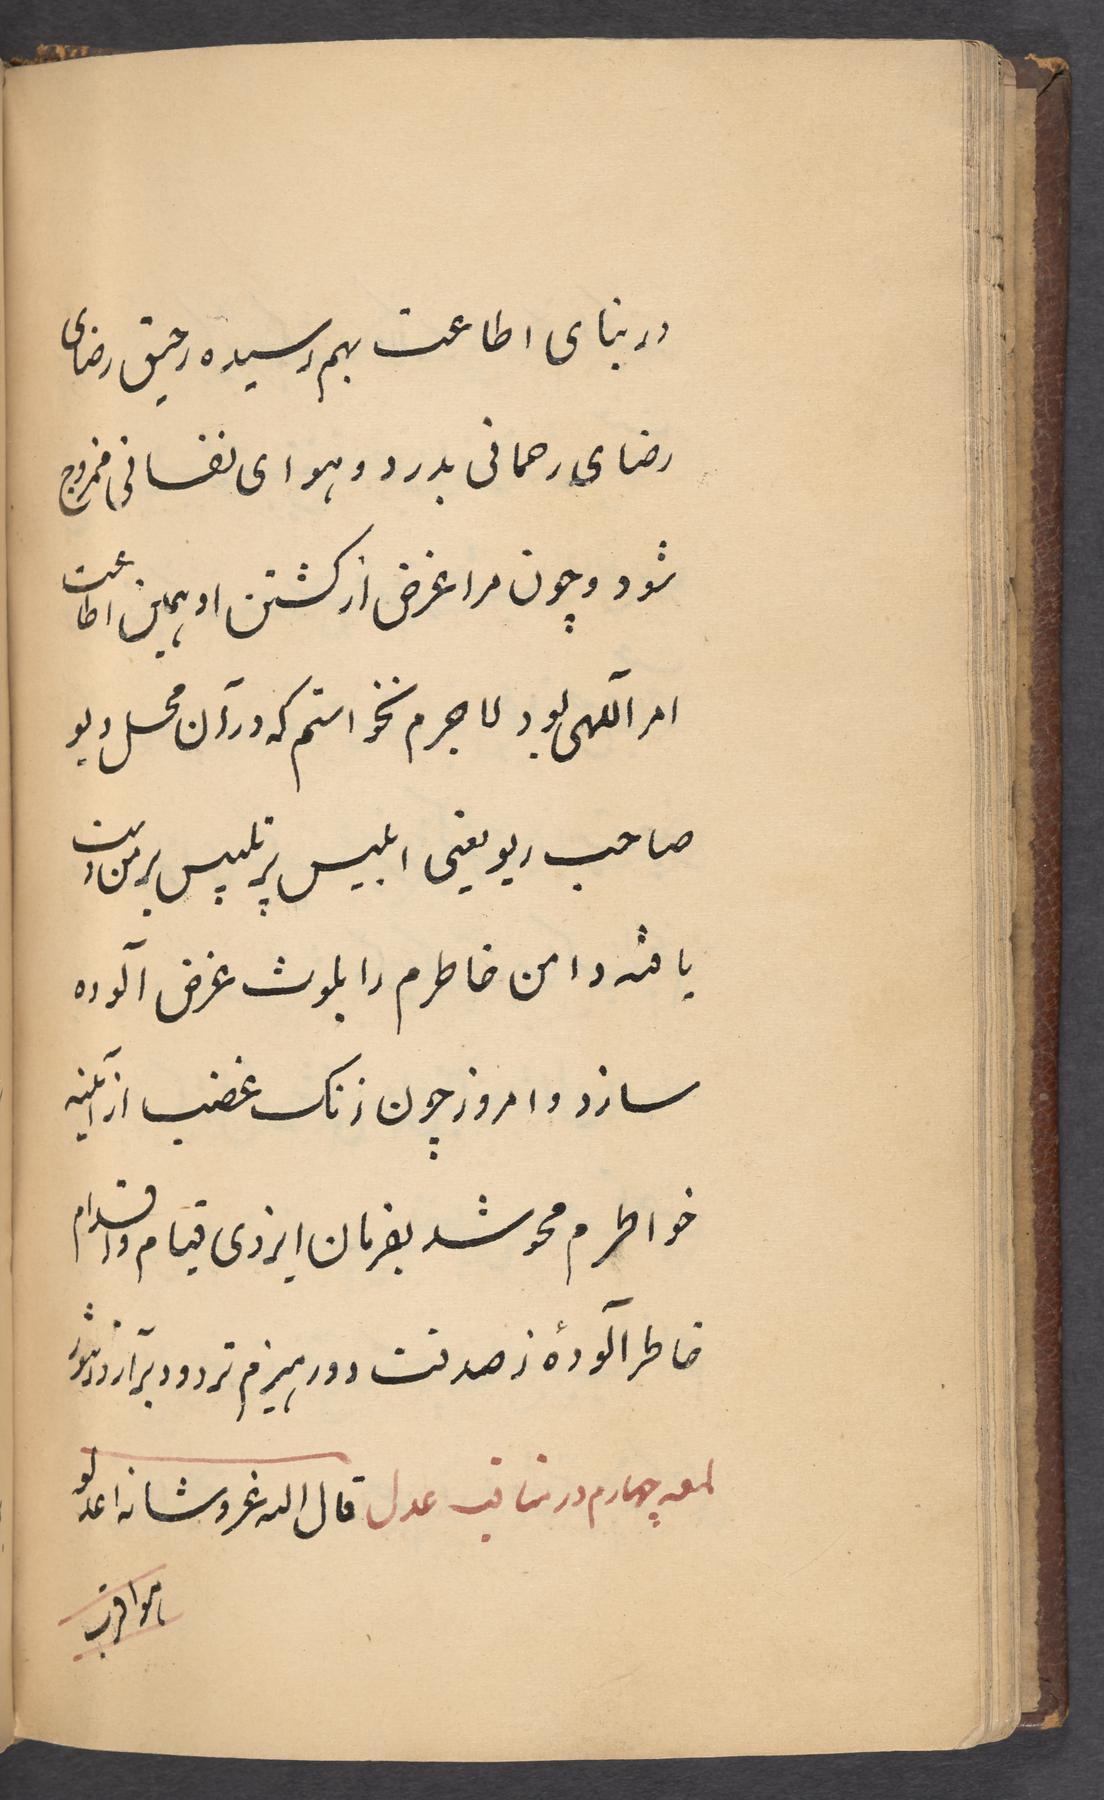 در بنای اطاعت بهم رسیده رحیق رضای
رضای رحمانی بدرد و هوای نفسانی ممزوج
شود و چون مرا غرض از کشتن او همین اطاعت
امر آلهی بود لاجرم نخواستم که در آن محل دیو
صاحب ریو یعنی ابلیس پر تلبیس بر من دست
یافته دامن خاطرم را بلوث غرض آلوده
سازد و امروز چون زنک غضب از آئینه
خواطرم محو شد بفرمان ایزدی قیام و اقدام
خاطر آلودهٔ ز صدقت دور هیزم تر دود برآرد
لمعه چهارم در مناقب عدل قال الله عز و شانه اعدلو
هوا قرب